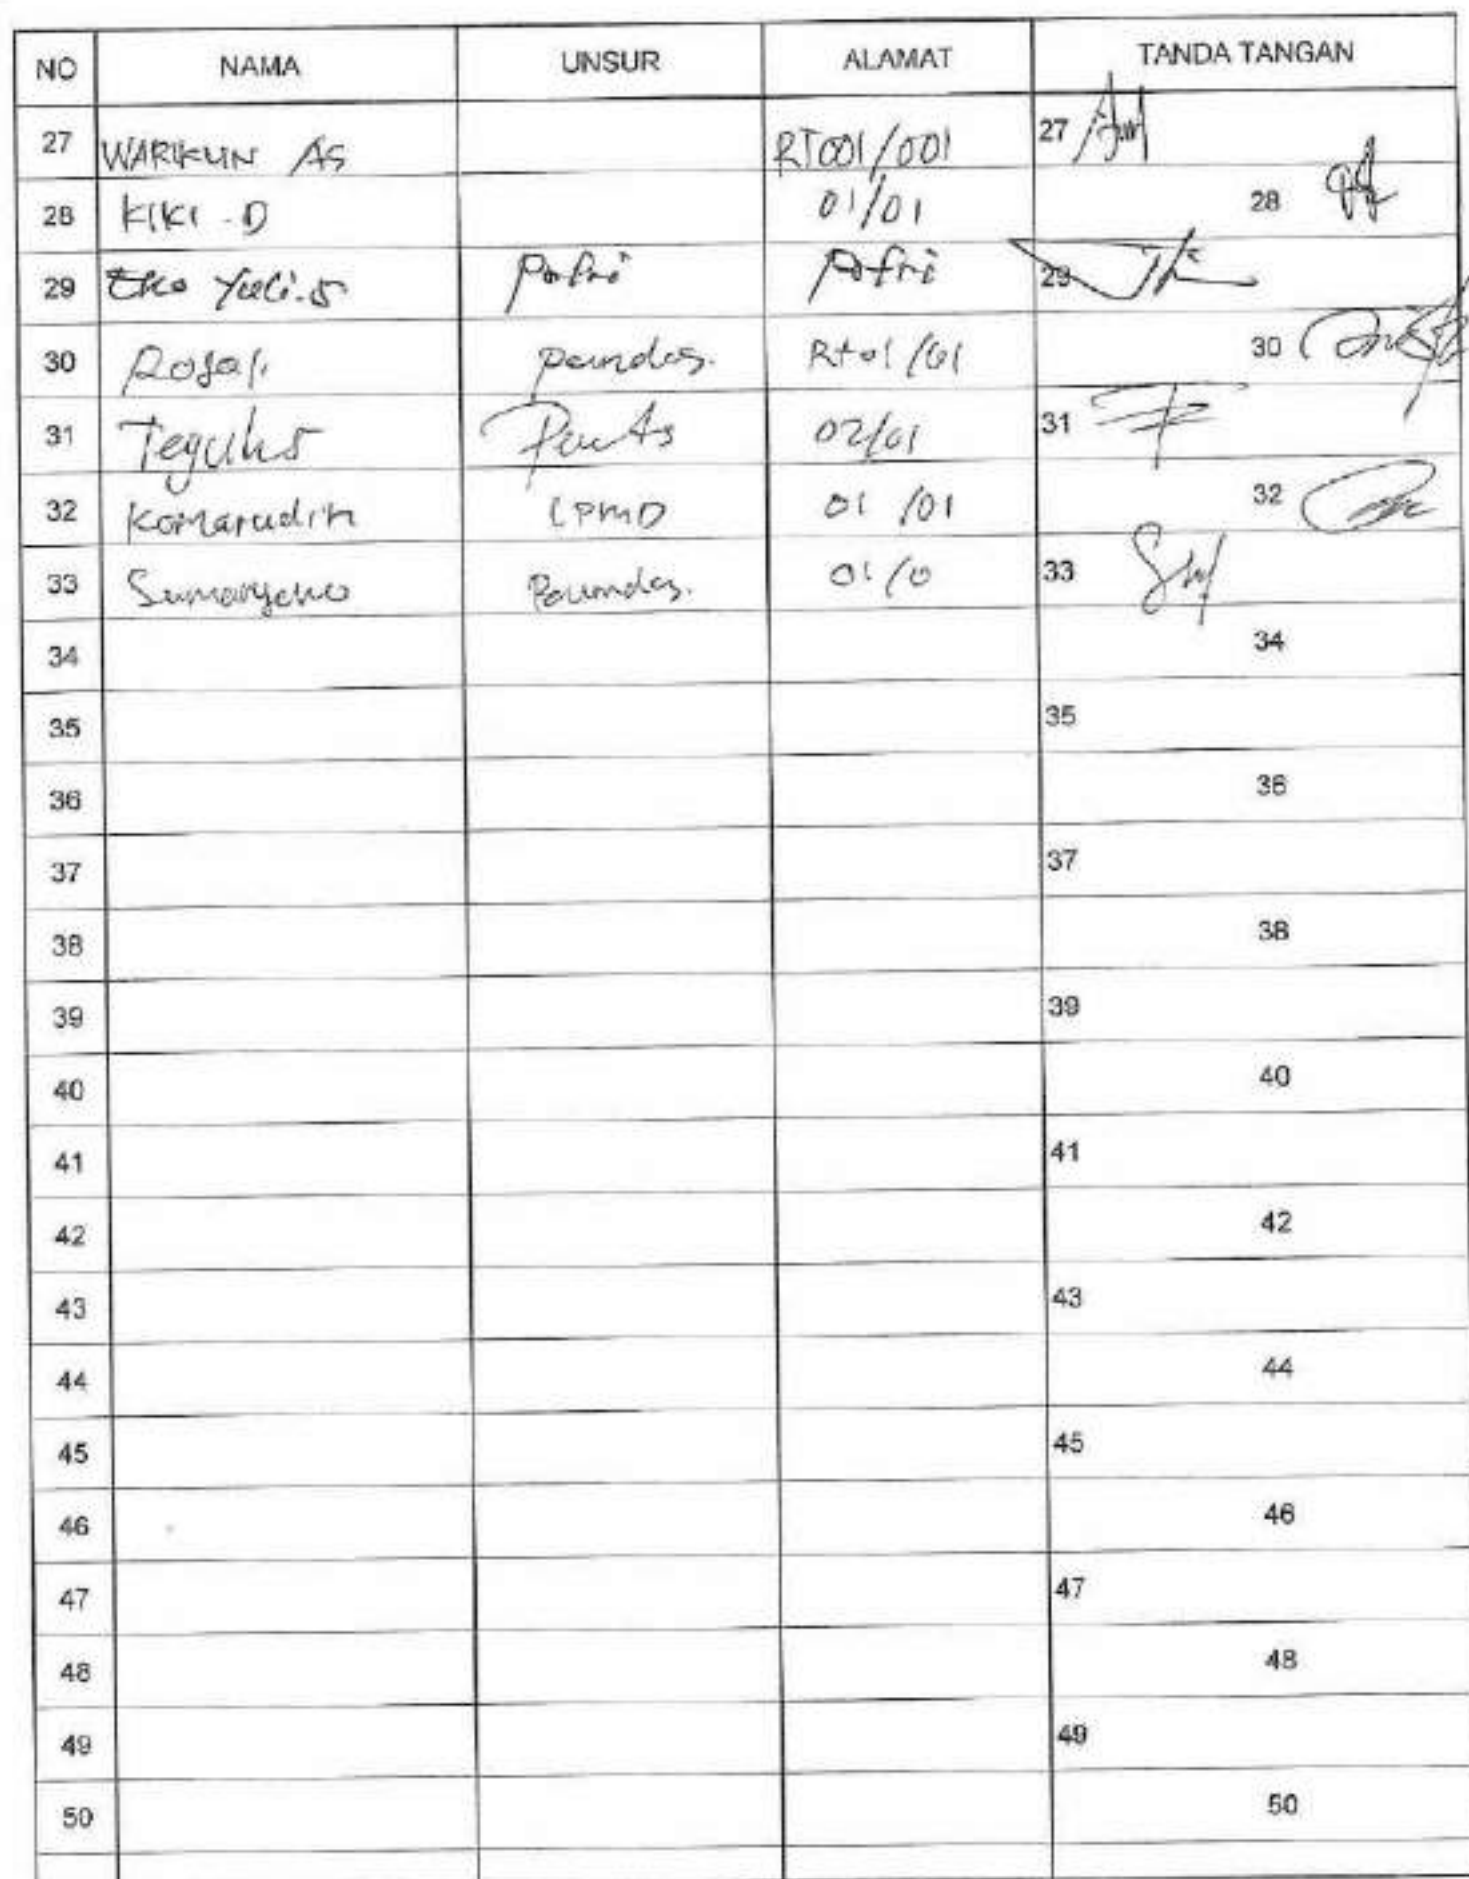 NO NAMA UNSUR ALAMAT TANDA TANGAN
27 WARIKUN AS RT001/001 27
28 KIKI - D 01/01 28
29 Eko Yuli.S 29
30 Rosali Rt01/01 30
31 Teguh S 02/01 31
32 Komarudin LPMD 01/01 32
33 01/0 33
34 34
35 35
36 36
37 37
38 38
39 39
40 40
41 41
42 42
43 43
44 44
45 45
46 46
47 47
48 48
49 49
50 50